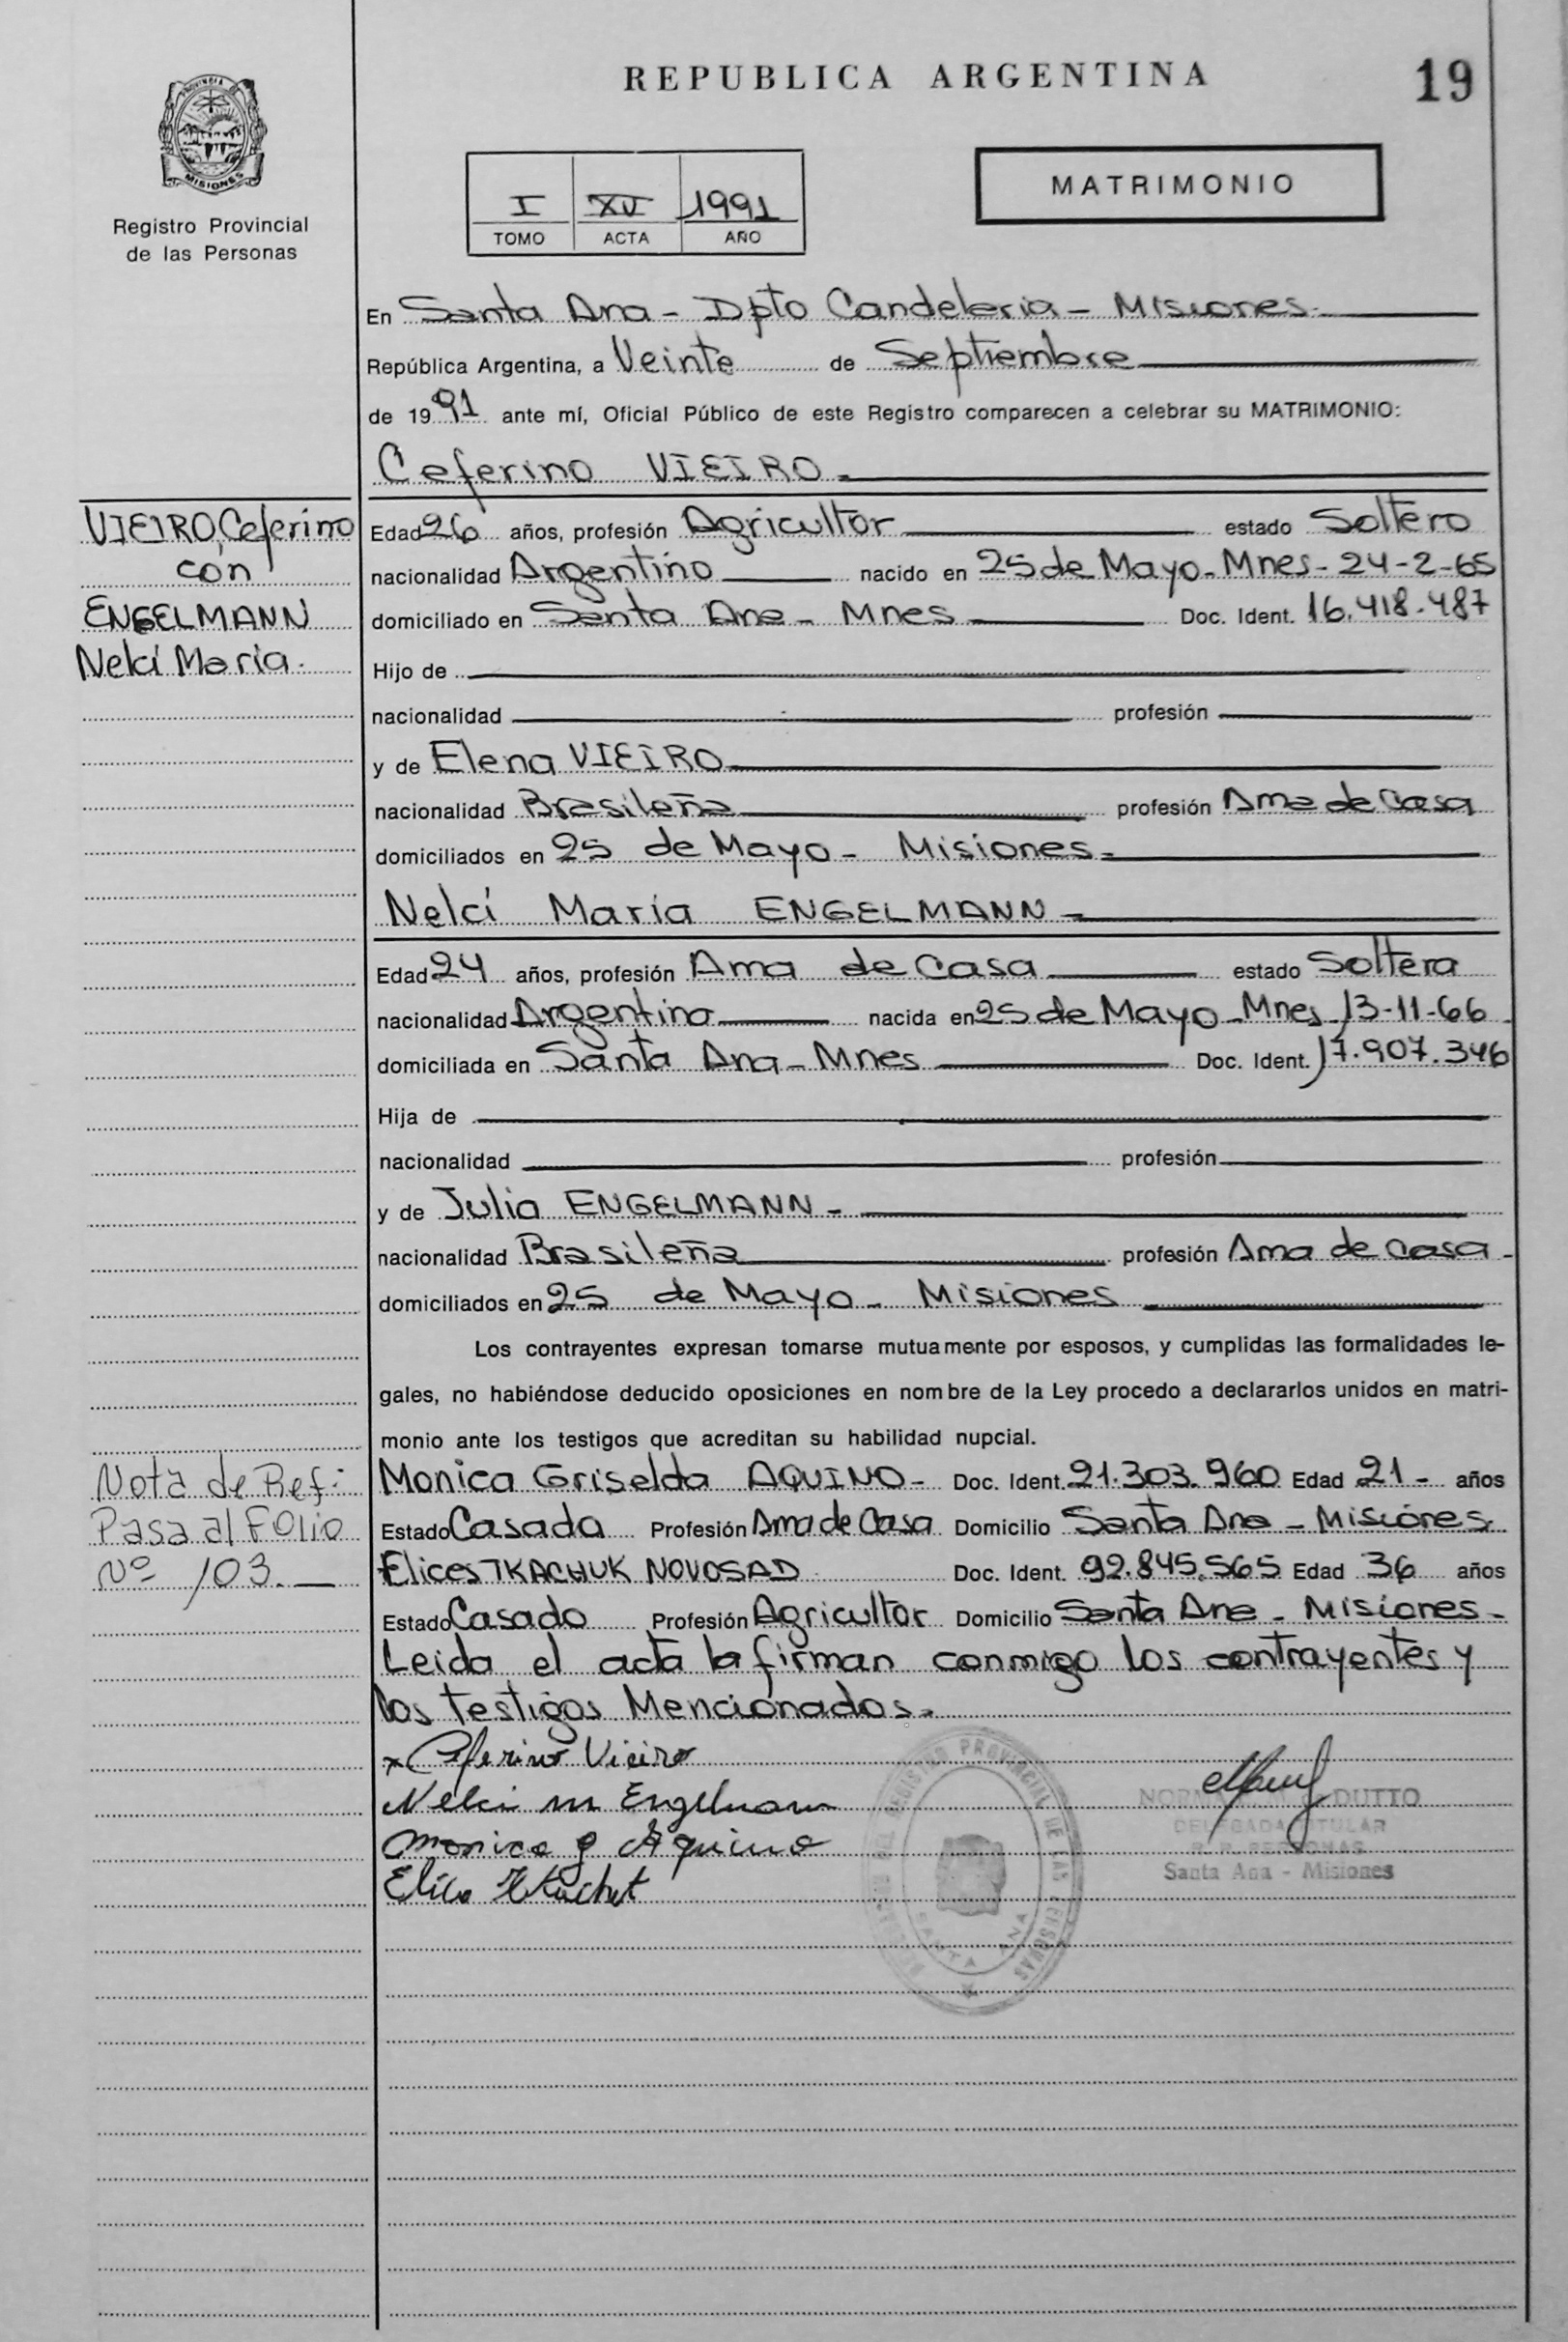 REPUBLICA ARGENTINA
19
PROVINCIA DE
MISIONES
Registro Provincial
de las Personas
I XV 1991
TOMO ACTA AÑO
MATRIMONIO
En Santa Ana - Dpto Candelaria - Misiones.
República Argentina, a Veinte de Septiembre
de 1991 ante mí, Oficial Público de este Registro comparecen a celebrar su MATRIMONIO:
Ceferino VIEIRO
VIEIRO, Ceferino
con
ENGELMANN
Nelcí María.
Edad 26 años, profesión Agricultor estado Soltero
nacionalidad Argentino nacido en 25 de Mayo - Mnes - 24-2-65
domiciliado en Santa Ana - Mnes Doc. Ident. 16.418.487
Hijo de
nacionalidad profesión
y de Elena VIEIRO
nacionalidad Brasileña profesión Ama de Casa
domiciliados en 25 de Mayo - Misiones
Nelcí María ENGELMANN
Edad 24 años, profesión Ama de Casa estado Soltera
nacionalidad Argentina nacida en 25 de Mayo - Mnes 13-11-66
domiciliada en Santa Ana - Mnes Doc. Ident. 17.907.346
Hija de
nacionalidad profesión
y de Julia ENGELMANN -
nacionalidad Brasileña profesión Ama de Casa -
domiciliados en 25 de Mayo - Misiones
Los contrayentes expresan tomarse mutuamente por esposos, y cumplidas las formalidades le-
gales, no habiéndose deducido oposiciones en nombre de la Ley procedo a declararlos unidos en matri-
monio ante los testigos que acreditan su habilidad nupcial.
Nota de Ref:
Pasa al Folio
Nº 103.
Monica Griselda AQUINO - Doc. Ident. 21.303.960 Edad 21 - años
Estado Casada Profesión Ama de Casa Domicilio Santa Ana - Misiones.
Elices TKACHUK NOVOSAD Doc. Ident. 92.845.565 Edad 36 años
Estado Casado Profesión Agricultor Domicilio Santa Ana - Misiones -
Leida el acta la firman conmigo los contrayentes y
los testigos Mencionados.
x Ceferino Vieiro
Nelci m Engelmann
monica g Aquino
REGISTRO PROVINCIAL DE LAS PERSONAS
SANTA ANA
DUTTO
DELEGADA TITULAR
R. P. PERSONAS
Santa Ana - Misiones